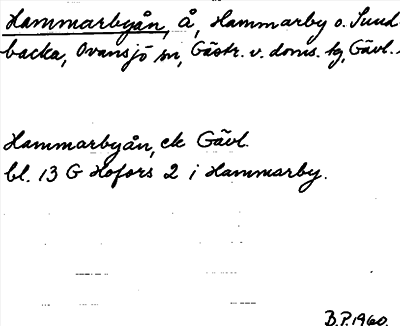 Hammarbyån, å, Hammarby o. Sund
backa, Ovansjö sn, Gästr. v. doms. tg, Gävl.
Hammarbyån, ek Gävl.
bl. 13 G Hofors 2 i Hammarby.
B.P. 1960.